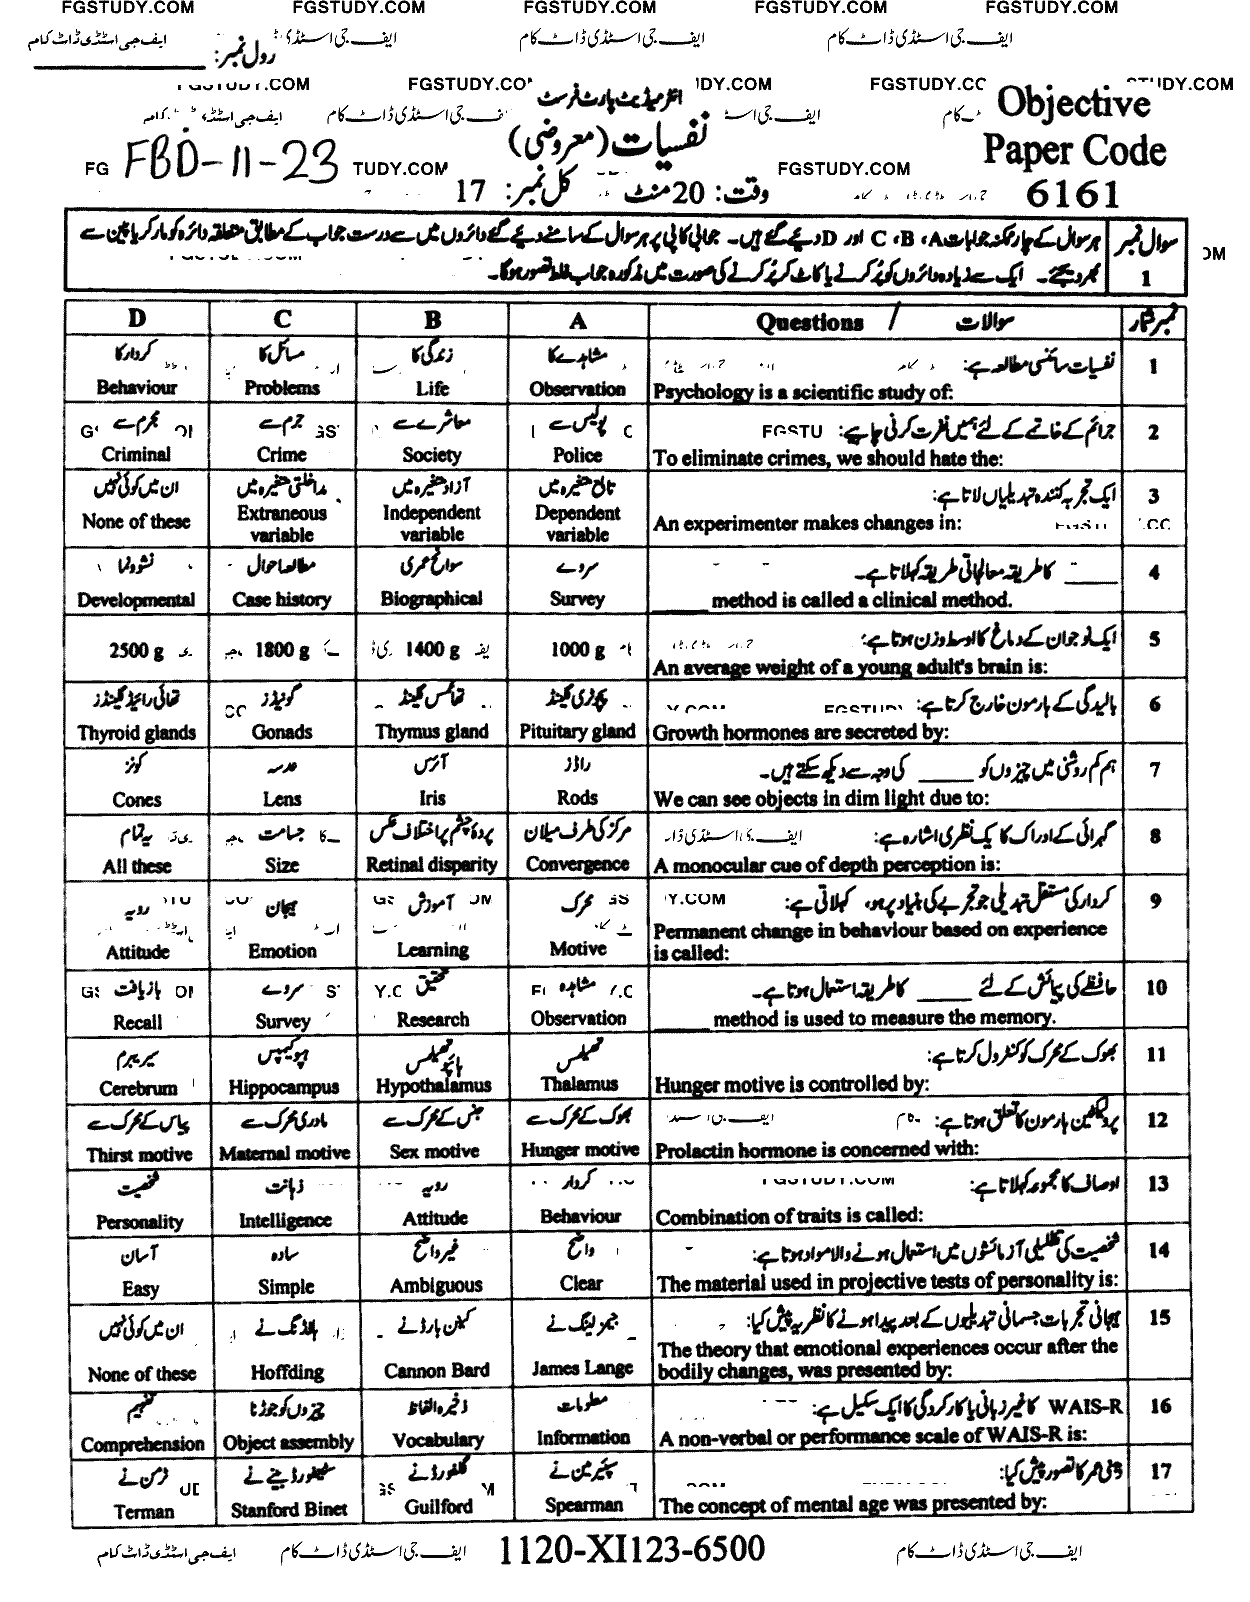 FGSTUDY.COM FGSTUDY.COM FGSTUDY.COM FGSTUDY.COM FGSTUDY.COM
ایف جی اسٹڈی ڈاٹ کام ایف جی اسٹڈی ڈاٹ کام ایف جی اسٹڈی ڈاٹ کام
رول نمبر:
FGSTUDY.COM
انٹرمیڈیٹ پارٹ فرسٹ
Objective
نفسیات (معروضی)
Paper Code
FBD-11-23
FGSTUDY.COM
وقت: 20 منٹ کل نمبر: 17
6161
سوال نمبر 1
ہر سوال کے چار ممکنہ جوابات A، B، C اور D دیے گئے ہیں۔ جوابی کاپی پر ہر سوال کے سامنے دیے گئے دائروں میں سے درست جواب کے مطابق متعلقہ دائرہ کو مارکر یا پین سے
بھر دیجئے۔ ایک سے زیادہ دائروں کو پُر کرنے یا کاٹ کر پُر کرنے کی صورت میں مذکورہ جواب غلط تصور ہوگا۔
D C B A Questions / سوالات نمبر شمار
کردار کا مسائل کا زندگی کا مشاہدے کا نفسیات سائنسی مطالعہ ہے: 1
Behaviour Problems Life Observation Psychology is a scientific study of:
مجرم سے جرم سے معاشرے سے پولیس سے جرائم کے خاتمے کے لئے ہمیں نفرت کرنی چاہیے: 2
Criminal Crime Society Police To eliminate crimes, we should hate the:
ان میں کوئی نہیں مداخلتی متغیرہ میں آزاد متغیرہ میں تابع متغیرہ میں ایک تجربہ کنندہ تبدیلیاں لاتا ہے: 3
None of these Extraneous variable Independent variable Dependent variable An experimenter makes changes in:
نشوونما مطالعہ احوال سوانح عمری سروے _____ کا طریقہ معالجاتی طریقہ کہلاتا ہے۔ 4
Developmental Case history Biographical Survey _____ method is called a clinical method.
ایک نوجوان کے دماغ کا اوسط وزن ہوتا ہے: 5
2500 g 1800 g 1400 g 1000 g An average weight of a young adult's brain is:
تھائی رائیڈ گلینڈز گونیڈز تھائمس گلینڈ پچوٹری گلینڈ بالیدگی کے ہارمون خارج کرتا ہے: 6
Thyroid glands Gonads Thymus gland Pituitary gland Growth hormones are secreted by:
کونز عدسہ آئرس راڈز ہم کم روشنی میں چیزوں کو _____ کی وجہ سے دیکھ سکتے ہیں۔ 7
Cones Lens Iris Rods We can see objects in dim light due to:
یہ تمام جسامت پردۂ چشم پر اختلاف عکس مرکز کی طرف میلان گہرائی کے ادراک کا یک نظری اشارہ ہے: 8
All these Size Retinal disparity Convergence A monocular cue of depth perception is:
رویہ ہیجان آموزش محرک کردار کی مستقل تبدیلی جو تجربے کی بنیاد پر ہو، کہلاتی ہے: 9
Attitude Emotion Learning Motive Permanent change in behaviour based on experience
is called:
بازیافت سروے تحقیق مشاہدہ حافظے کی پیمائش کے لئے _____ کا طریقہ استعمال ہوتا ہے۔ 10
Recall Survey Research Observation _____ method is used to measure the memory.
سیریبرم ہپوکیمپس ہائپوتھیلمس تھیلمس بھوک کے محرک کو کنٹرول کرتا ہے: 11
Cerebrum Hippocampus Hypothalamus Thalamus Hunger motive is controlled by:
پیاس کے محرک سے مادری محرک سے جنس کے محرک سے بھوک کے محرک سے پرولیکٹین ہارمون کا تعلق ہوتا ہے: 12
Thirst motive Maternal motive Sex motive Hunger motive Prolactin hormone is concerned with:
شخصیت ذہانت رویہ کردار اوصاف کا مجموعہ کہلاتا ہے: 13
Personality Intelligence Attitude Behaviour Combination of traits is called:
آسان سادہ غیر واضح واضح شخصیت کی تظلیلی آزمائشوں میں استعمال ہونے والا مواد ہوتا ہے: 14
Easy Simple Ambiguous Clear The material used in projective tests of personality is:
ان میں کوئی نہیں ہافڈنگ نے کینن بارڈ نے جیمز لینگ نے ہیجانی تجربات جسمانی تبدیلیوں کے بعد پیدا ہونے کا نظریہ پیش کیا: 15
None of these Hoffding Cannon Bard James Lange The theory that emotional experiences occur after the
bodily changes, was presented by:
تفہیم چیزوں کو جوڑنا ذخیرہ الفاظ معلومات WAIS-R کا غیر زبانی یا کارکردگی کا ایک سکیل ہے: 16
Comprehension Object assembly Vocabulary Information A non-verbal or performance scale of WAIS-R is:
ٹرمن نے سٹینفورڈ بینے نے گلفورڈ نے سپئیرمین نے ذہنی عمر کا تصور پیش کیا: 17
Terman Stanford Binet Guilford Spearman The concept of mental age was presented by:
ایف جی اسٹڈی ڈاٹ کام ایف جی اسٹڈی ڈاٹ کام 1120-XI123-6500 ایف جی اسٹڈی ڈاٹ کام